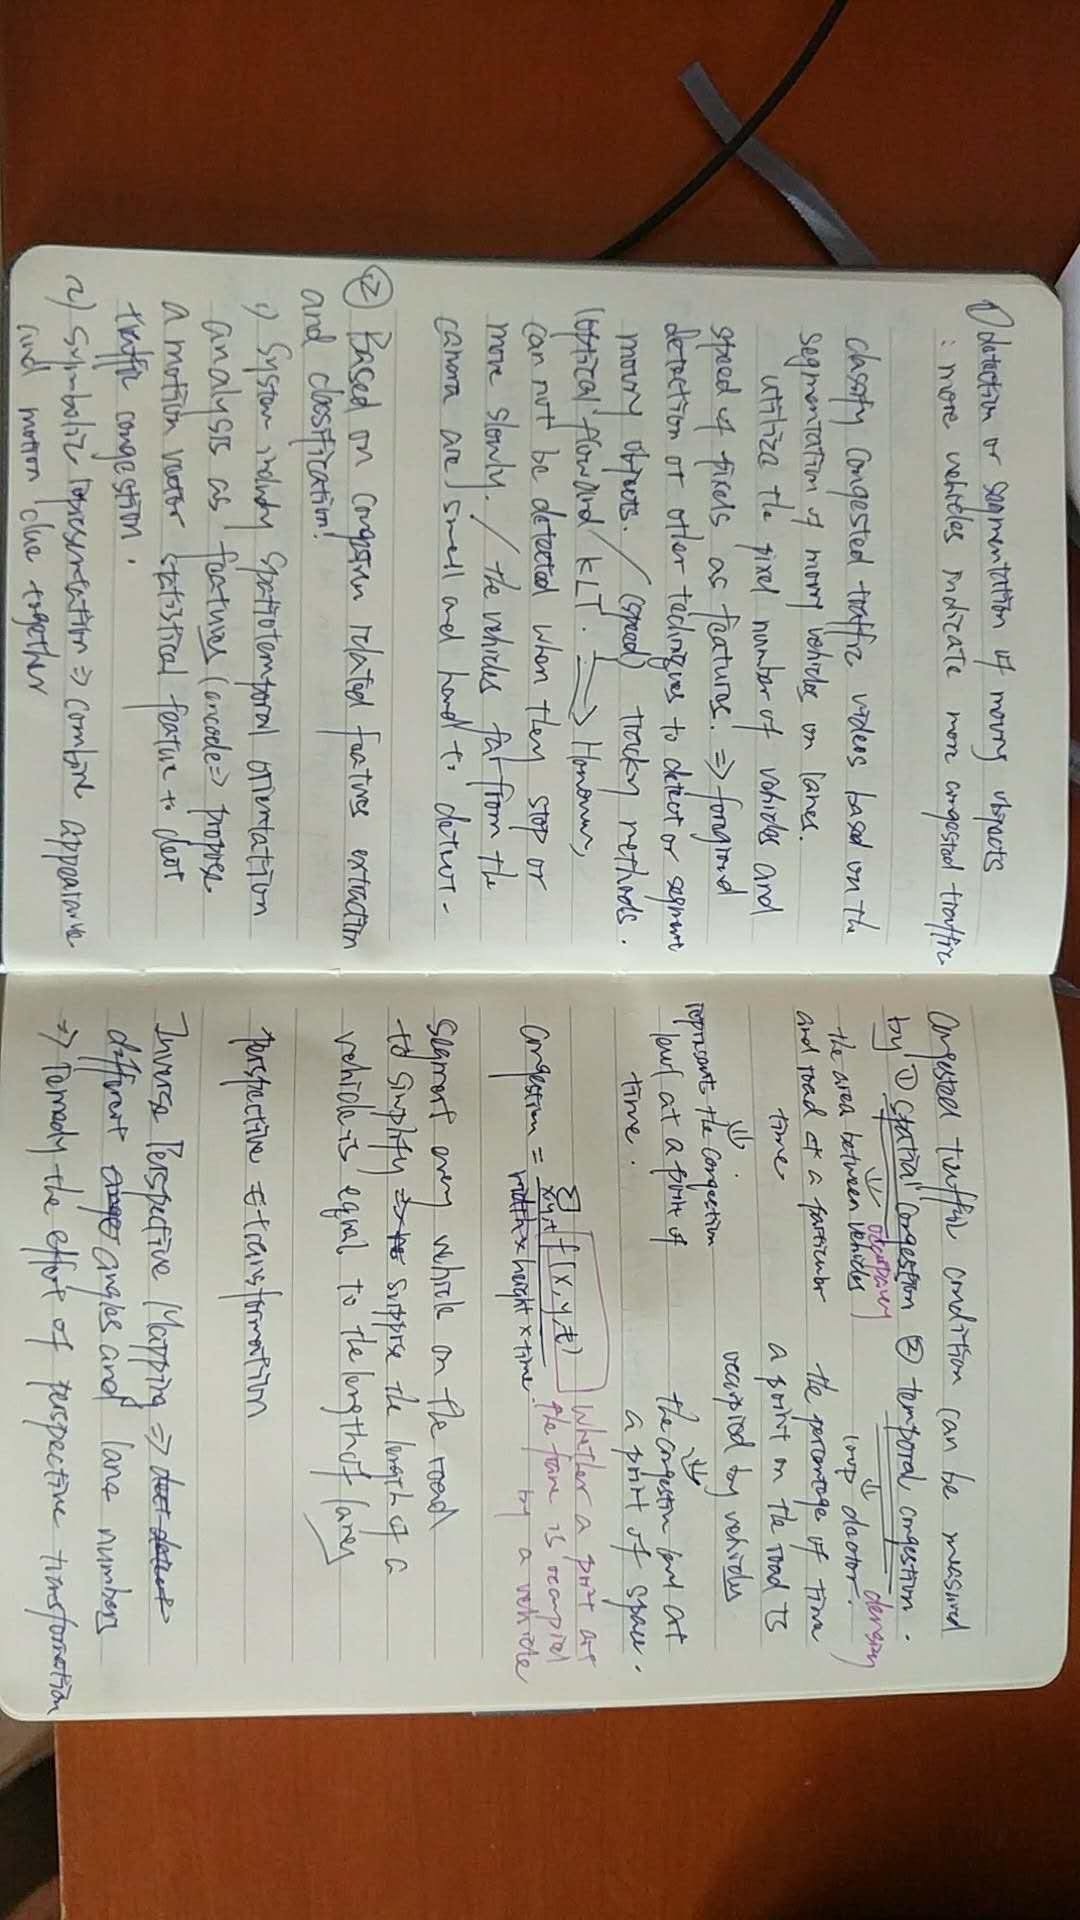 ① detection or segmentation of moving objects
: more vehicles indicate more congested traffic
classify congested traffic videos based on the
segmentation of moving vehicles on lanes.
utilize the pixel number of vehicles and
speed of pixels as features. ⇒ foreground
detection or other techniques to detect or segment
moving objects. / (speed) tracking methods.
(optical flow and KLT. ⇒ However,
can not be detected when they stop or
move slowly. / the vehicles far from the
camera are small and hard to detect.
② Based on congestion related features extraction
and classification!
1) System Spatiotemporal orientation
analysis as features (encode ⇒ propose
a motion vector statistical feature to
traffic congestion.
2) Symbolic representation ⇒ combine appearance
and motion clue together
Congested traffic condition can be measured
by ① Spatial Congestion ② temporal congestion.
⇓ occupancy
⇓ density
the area between vehicles
and road at a particular
time
loop detector.
the percentage of time
a point on the road is
occupied by vehicles
⇓
represents the congestion
level at a point of
time.
⇓
the congestion level at
a point of space.
Congestion = Σx,y,t f(x,y,t) / width × height × time.
whether a point at
the frame is occupied
by a vehicle
Segment every vehicle on the road
to simplify ⇒ suppose the length of a
vehicle is equal to the length of lanes
perspective transformation
Inverse Perspective Mapping ⇒
different angles and lane numbers
⇒ remedy the effect of perspective transformation